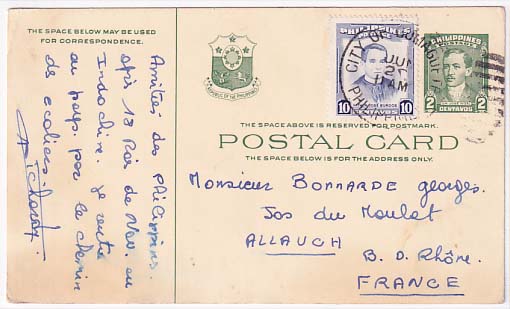 THE SPACE BELOW MAY BE USED
FOR CORRESPONDENCE.
Amitiés des Philippins.
après 18 mois de Nov. en
Indochine. je rentre
au pays. par le chemin
de ecoliers.
REPUBLIC OF THE PHILIPPINES
PHILIPPINES
POSTAGE
10 10
JOSE BURGOS
CITY OF
JUN
AM
PHILIPPINES
PHILIPPINES
POSTAGE
2 2
CENTAVOS
THE SPACE ABOVE IS RESERVED FOR POSTMARK.
POSTAL CARD
THE SPACE BELOW IS FOR THE ADDRESS ONLY.
Monsieur BONNARDE georges.
Jos du Moulet
ALLAUCH
B. D. Rhône.
FRANCE